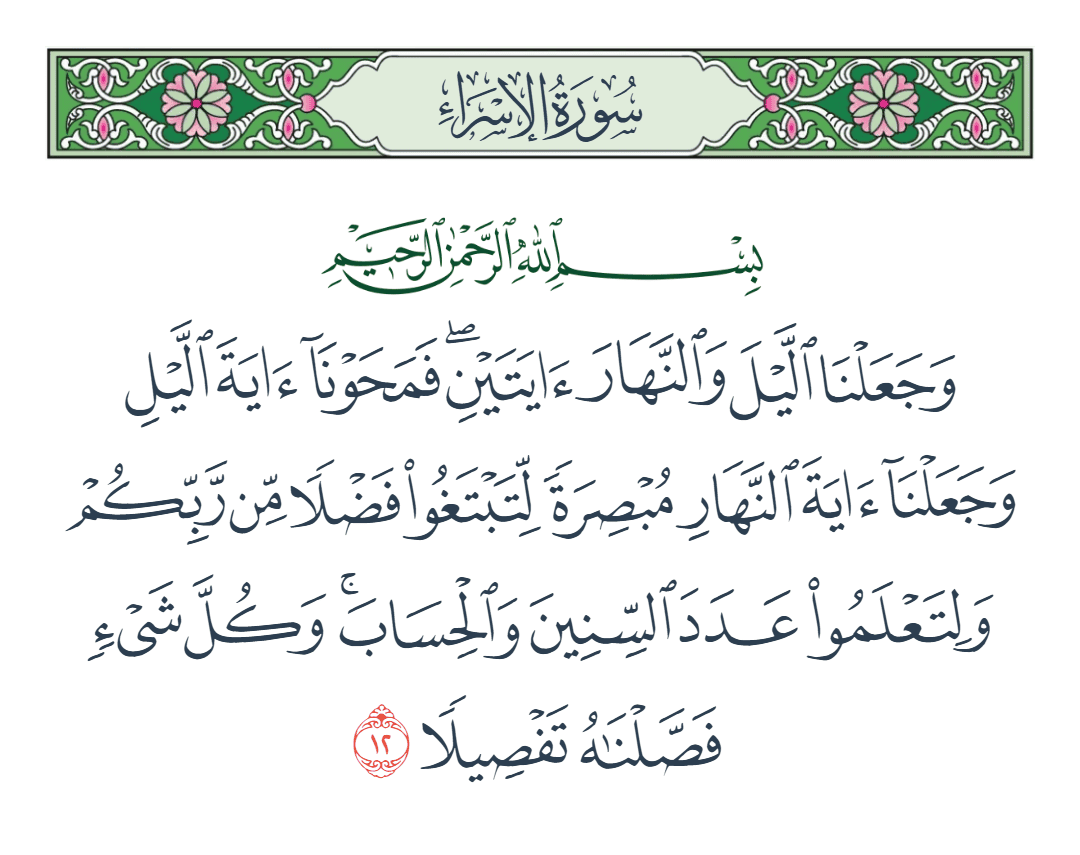 سُورَةُ الإِسْرَاءِ
بِسْمِ ٱللَّهِ ٱلرَّحْمَٰنِ ٱلرَّحِيمِ
وَجَعَلْنَا ٱلَّيْلَ وَٱلنَّهَارَ ءَايَتَيْنِۖ فَمَحَوْنَآ ءَايَةَ ٱلَّيْلِ
وَجَعَلْنَآ ءَايَةَ ٱلنَّهَارِ مُبْصِرَةً لِّتَبْتَغُوا۟ فَضْلًا مِّن رَّبِّكُمْ
وَلِتَعْلَمُوا۟ عَدَدَ ٱلسِّنِينَ وَٱلْحِسَابَۚ وَكُلَّ شَىْءٍ
فَصَّلْنَٰهُ تَفْصِيلًا ١٢